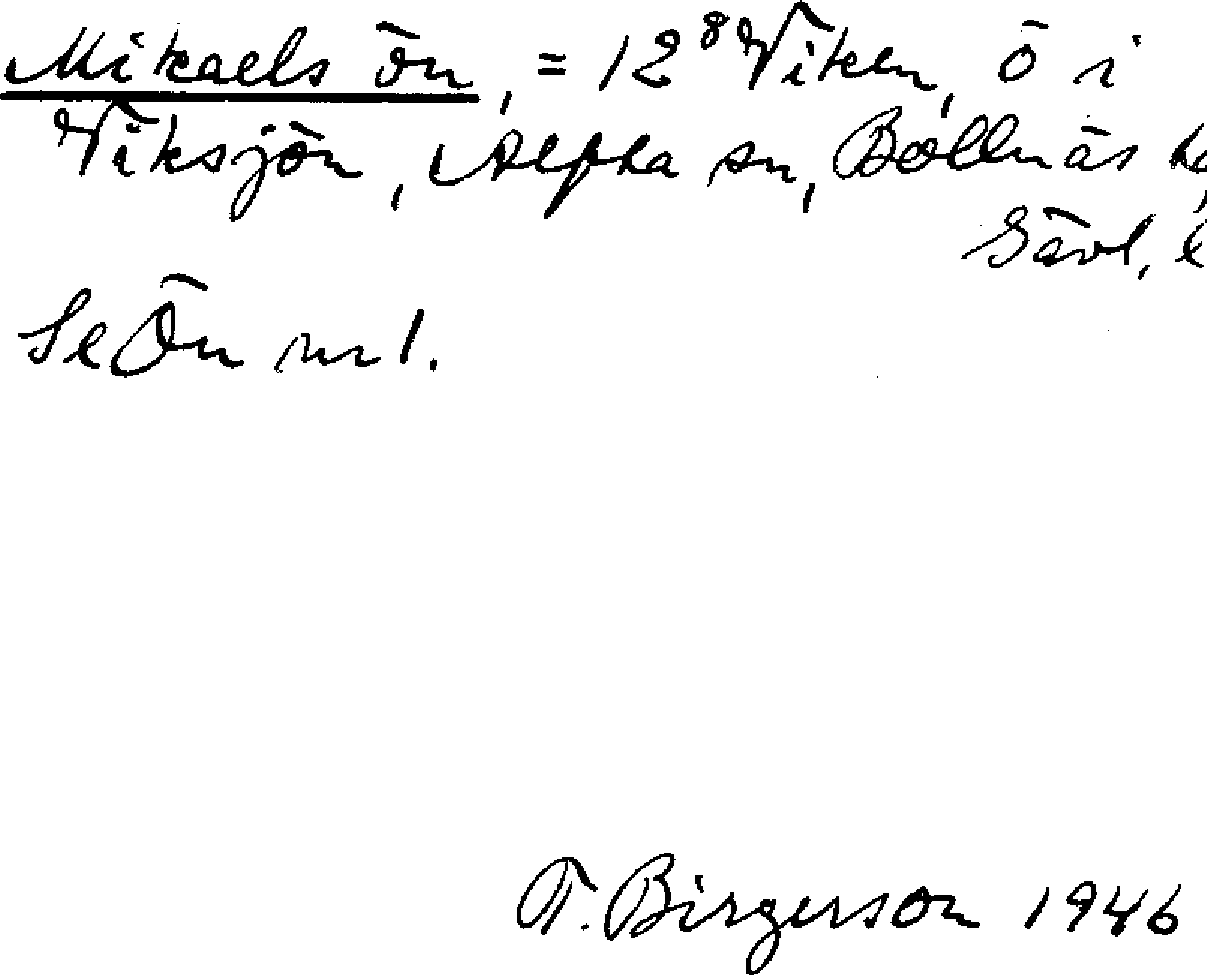 Mikaels ön, = 12⁸ Viken, ö i
Viksjön, Alfta sn, Bollnäs
Gävl. l
Se Ön nr 1.
T. Birgerson 1946